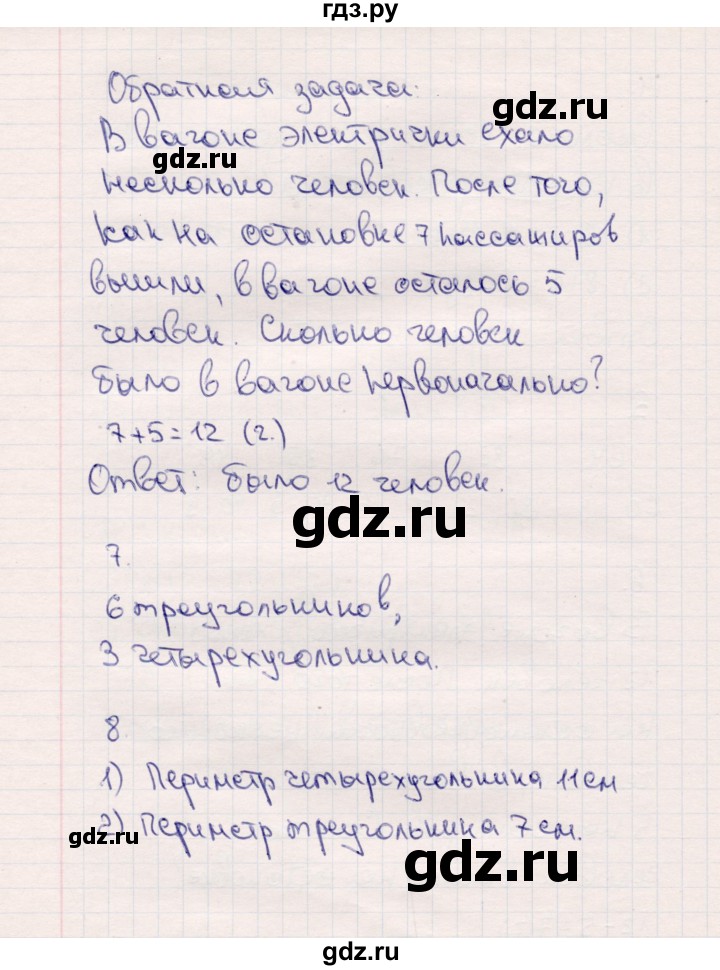 гдз.ру
Обратная задача:
gdz.ru
В вагоне электрички ехало
gdz.ru
несколько человек. После того,
как на остановке 7 пассажиров
вышли, в вагоне осталось 5
человек. Сколько человек
было в вагоне первоначально?
7+5=12 (ч.)
Ответ: было 12 человек.
gdz.ru
7.
6 треугольников,
3 четырехугольника.
8.
1) Периметр четырехугольника 11 см
2) Периметр треугольника 7 см.
gdz.ru
gdz.ru
gdz.ru